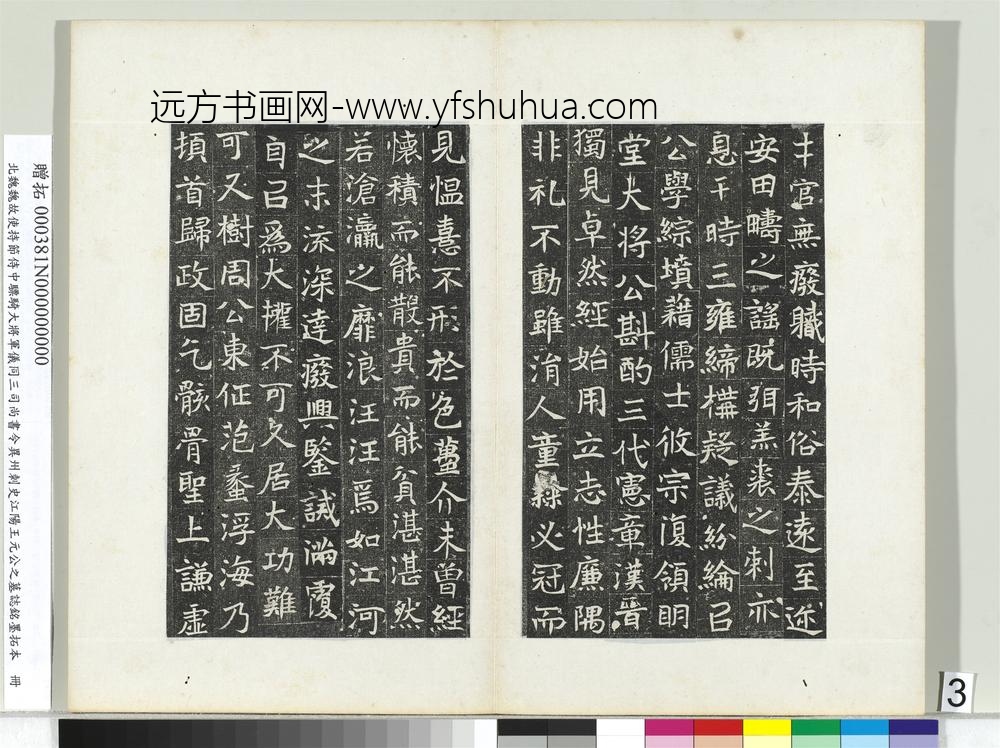 远方书画网-www.yfshuhua.com
才官無癈職時和俗泰遠至迩
安田疇之謡既弭羔裘之刺亦
息于時三雍締構疑議紛綸召
公學綜墳籍儒士攸宗復領明
堂大将公斟酌三代憲章漢晉
獨見卓然經始用立志性廉隅
非礼不動雖消人童隸必冠而
見愠憙不形於色蠆介未曾經
懷積而能散貴而能貧湛湛然
若滄瀛之靡浪汪汪焉如江河
之末流深逹癈興鋻誡滿覆
自㠯爲大權不可久居大功難
可又樹周公東征范蠡浮海乃
頓首歸政固乞骸骨聖上謙虚
贈拓 000381N000000000
北魏魏故使持節侍中驃騎大將軍儀同三司尚書令冀州刺史江陽王元公之墓誌銘墨拓本 冊
3